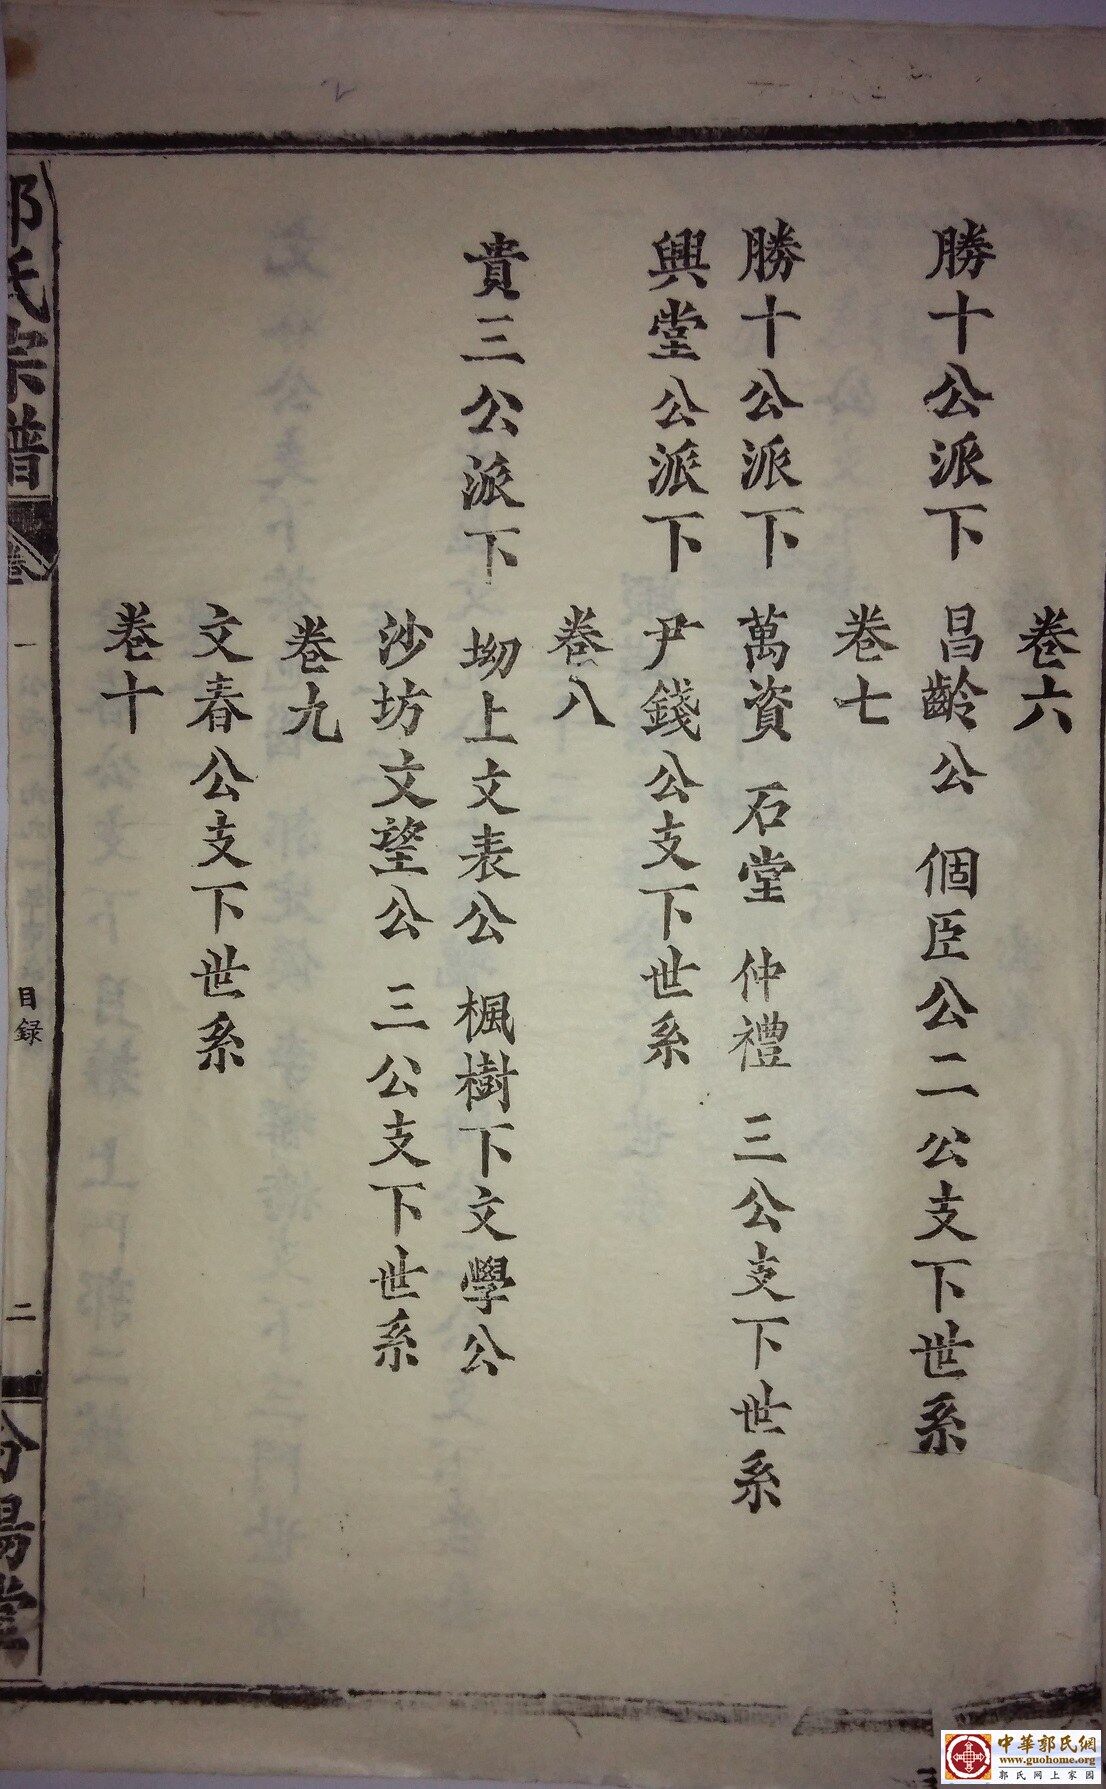 卷六
勝十公派下 昌齡公 個臣公二公支下世系
卷七
勝十公派下 萬資 石堂 仲禮 三公支下世系
興堂公派下 尹錢公支下世系
卷八
貴三公派下 坳上文表公 楓樹下文學公
沙坊文望公 三公支下世系
卷九
文春公支下世系
卷十
郭氏宗譜 卷一 目録 二 汾陽堂
中華郭氏網
www.guohome.org
郭氏网上家园